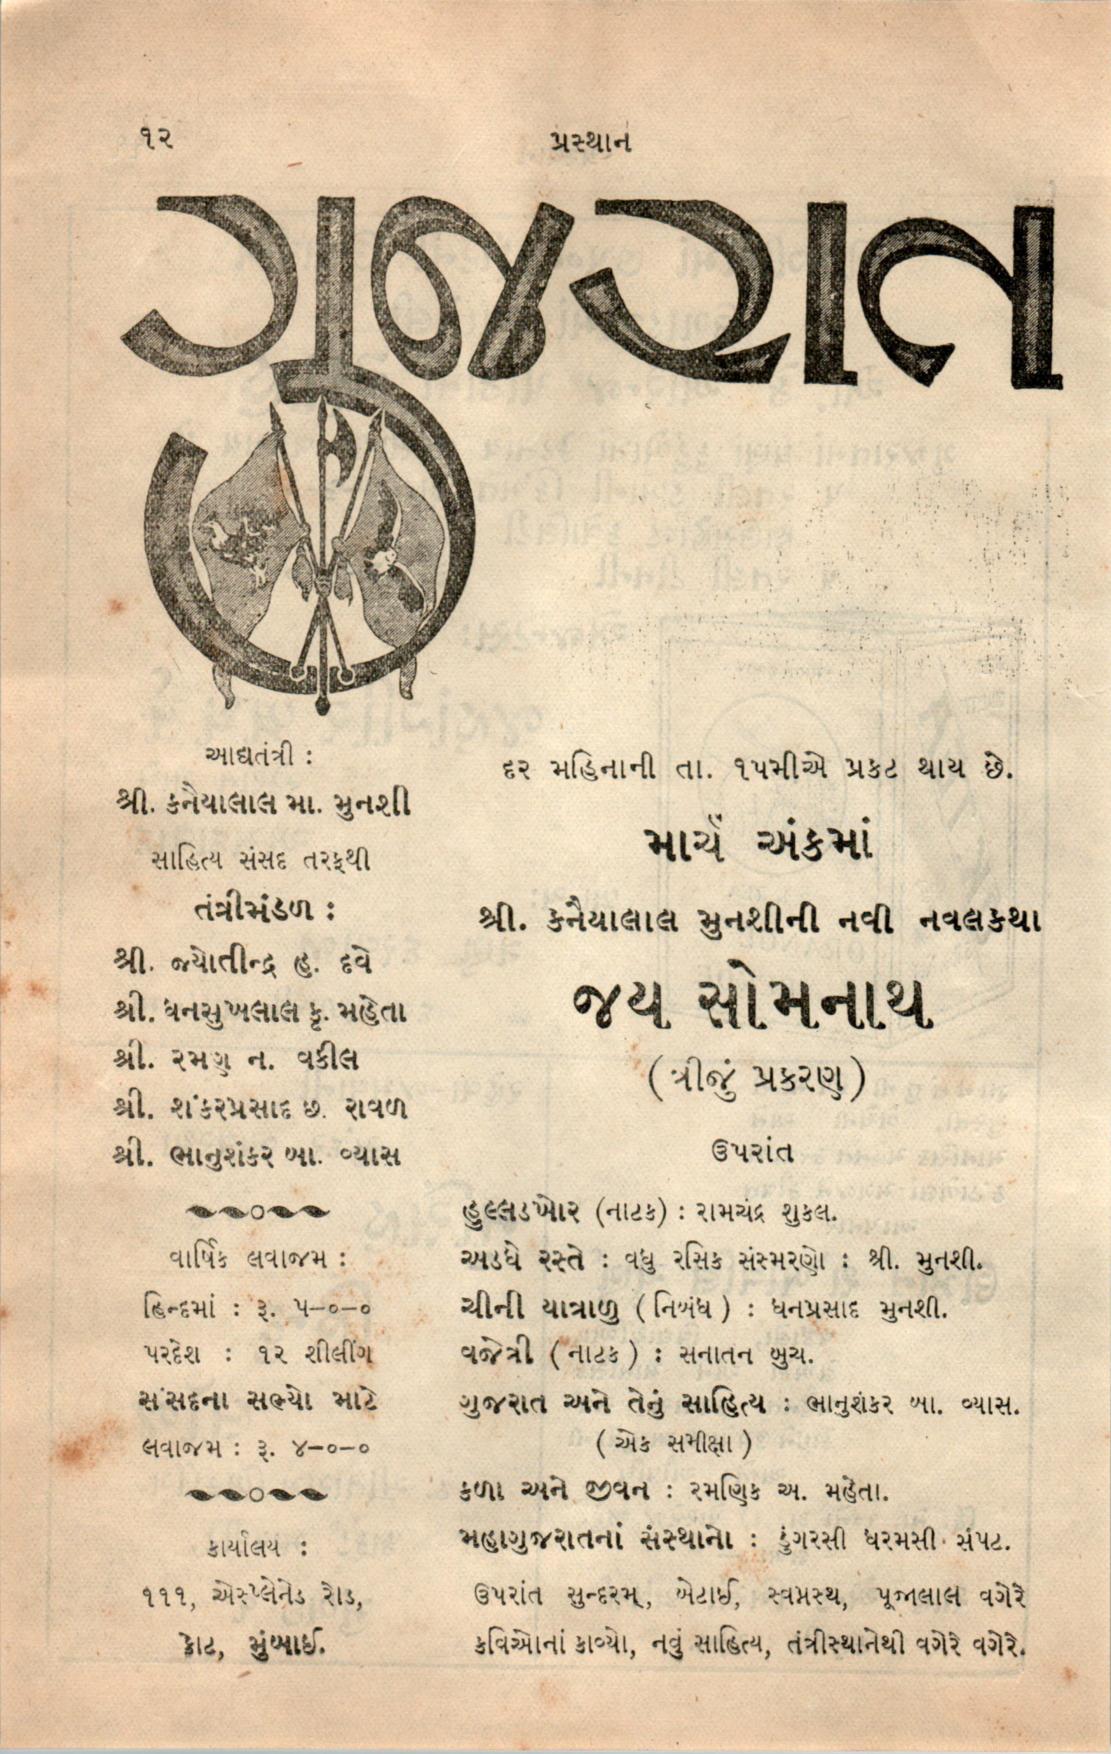 ૧૨
પ્રસ્થાન
ગુજરાત
આદ્યતંત્રી :
શ્રી. કનૈયાલાલ મા. મુનશી
સાહિત્ય સંસદ તરફથી
તંત્રીમંડળ :
શ્રી. જ્યોતીન્દ્ર હ. દવે
શ્રી. ધનસુખલાલ કૃ. મહેતા
શ્રી. રમણ ન. વકીલ
શ્રી. શંકરપ્રસાદ છ. રાવળ
શ્રી. ભાનુશંકર બા. વ્યાસ
વાર્ષિક લવાજમ :
હિન્દમાં : રૂ. ૫–૦–૦
પરદેશ : ૧૨ શીલીંગ
સંસદના સભ્યો માટે
લવાજમ : રૂ. ૪–૦–૦
કાર્યાલય :
૧૧૧, એસ્પ્લેનેડ રોડ,
કોટ, મુંબાઈ.
દર મહિનાની તા. ૧૫મીએ પ્રકટ થાય છે.
માર્ચ અંકમાં
શ્રી. કનૈયાલાલ મુનશીની નવી નવલકથા
જય સોમનાથ
(ત્રીજું પ્રકરણ)
ઉપરાંત
હુલ્લડખોર (નાટક) : રામચંદ્ર શુકલ.
અડધે રસ્તે : વધુ રસિક સંસ્મરણો : શ્રી. મુનશી.
ચીની યાત્રાળુ (નિબંધ) : ધનપ્રસાદ મુનશી.
વજેત્રી (નાટક) : સનાતન બુચ.
ગુજરાત અને તેનું સાહિત્ય : ભાનુશંકર બા. વ્યાસ.
(એક સમીક્ષા)
કળા અને જીવન : રમણિક અ. મહેતા.
મહાગુજરાતનાં સંસ્થાનો : ડુંગરસી ધરમસી સંપટ.
ઉપરાંત સુન્દરમ્, બેટાઈ, સ્વપ્નસ્થ, પૂજાલાલ વગેરે
કવિઓનાં કાવ્યો, નવું સાહિત્ય, તંત્રીસ્થાનેથી વગેરે વગેરે.